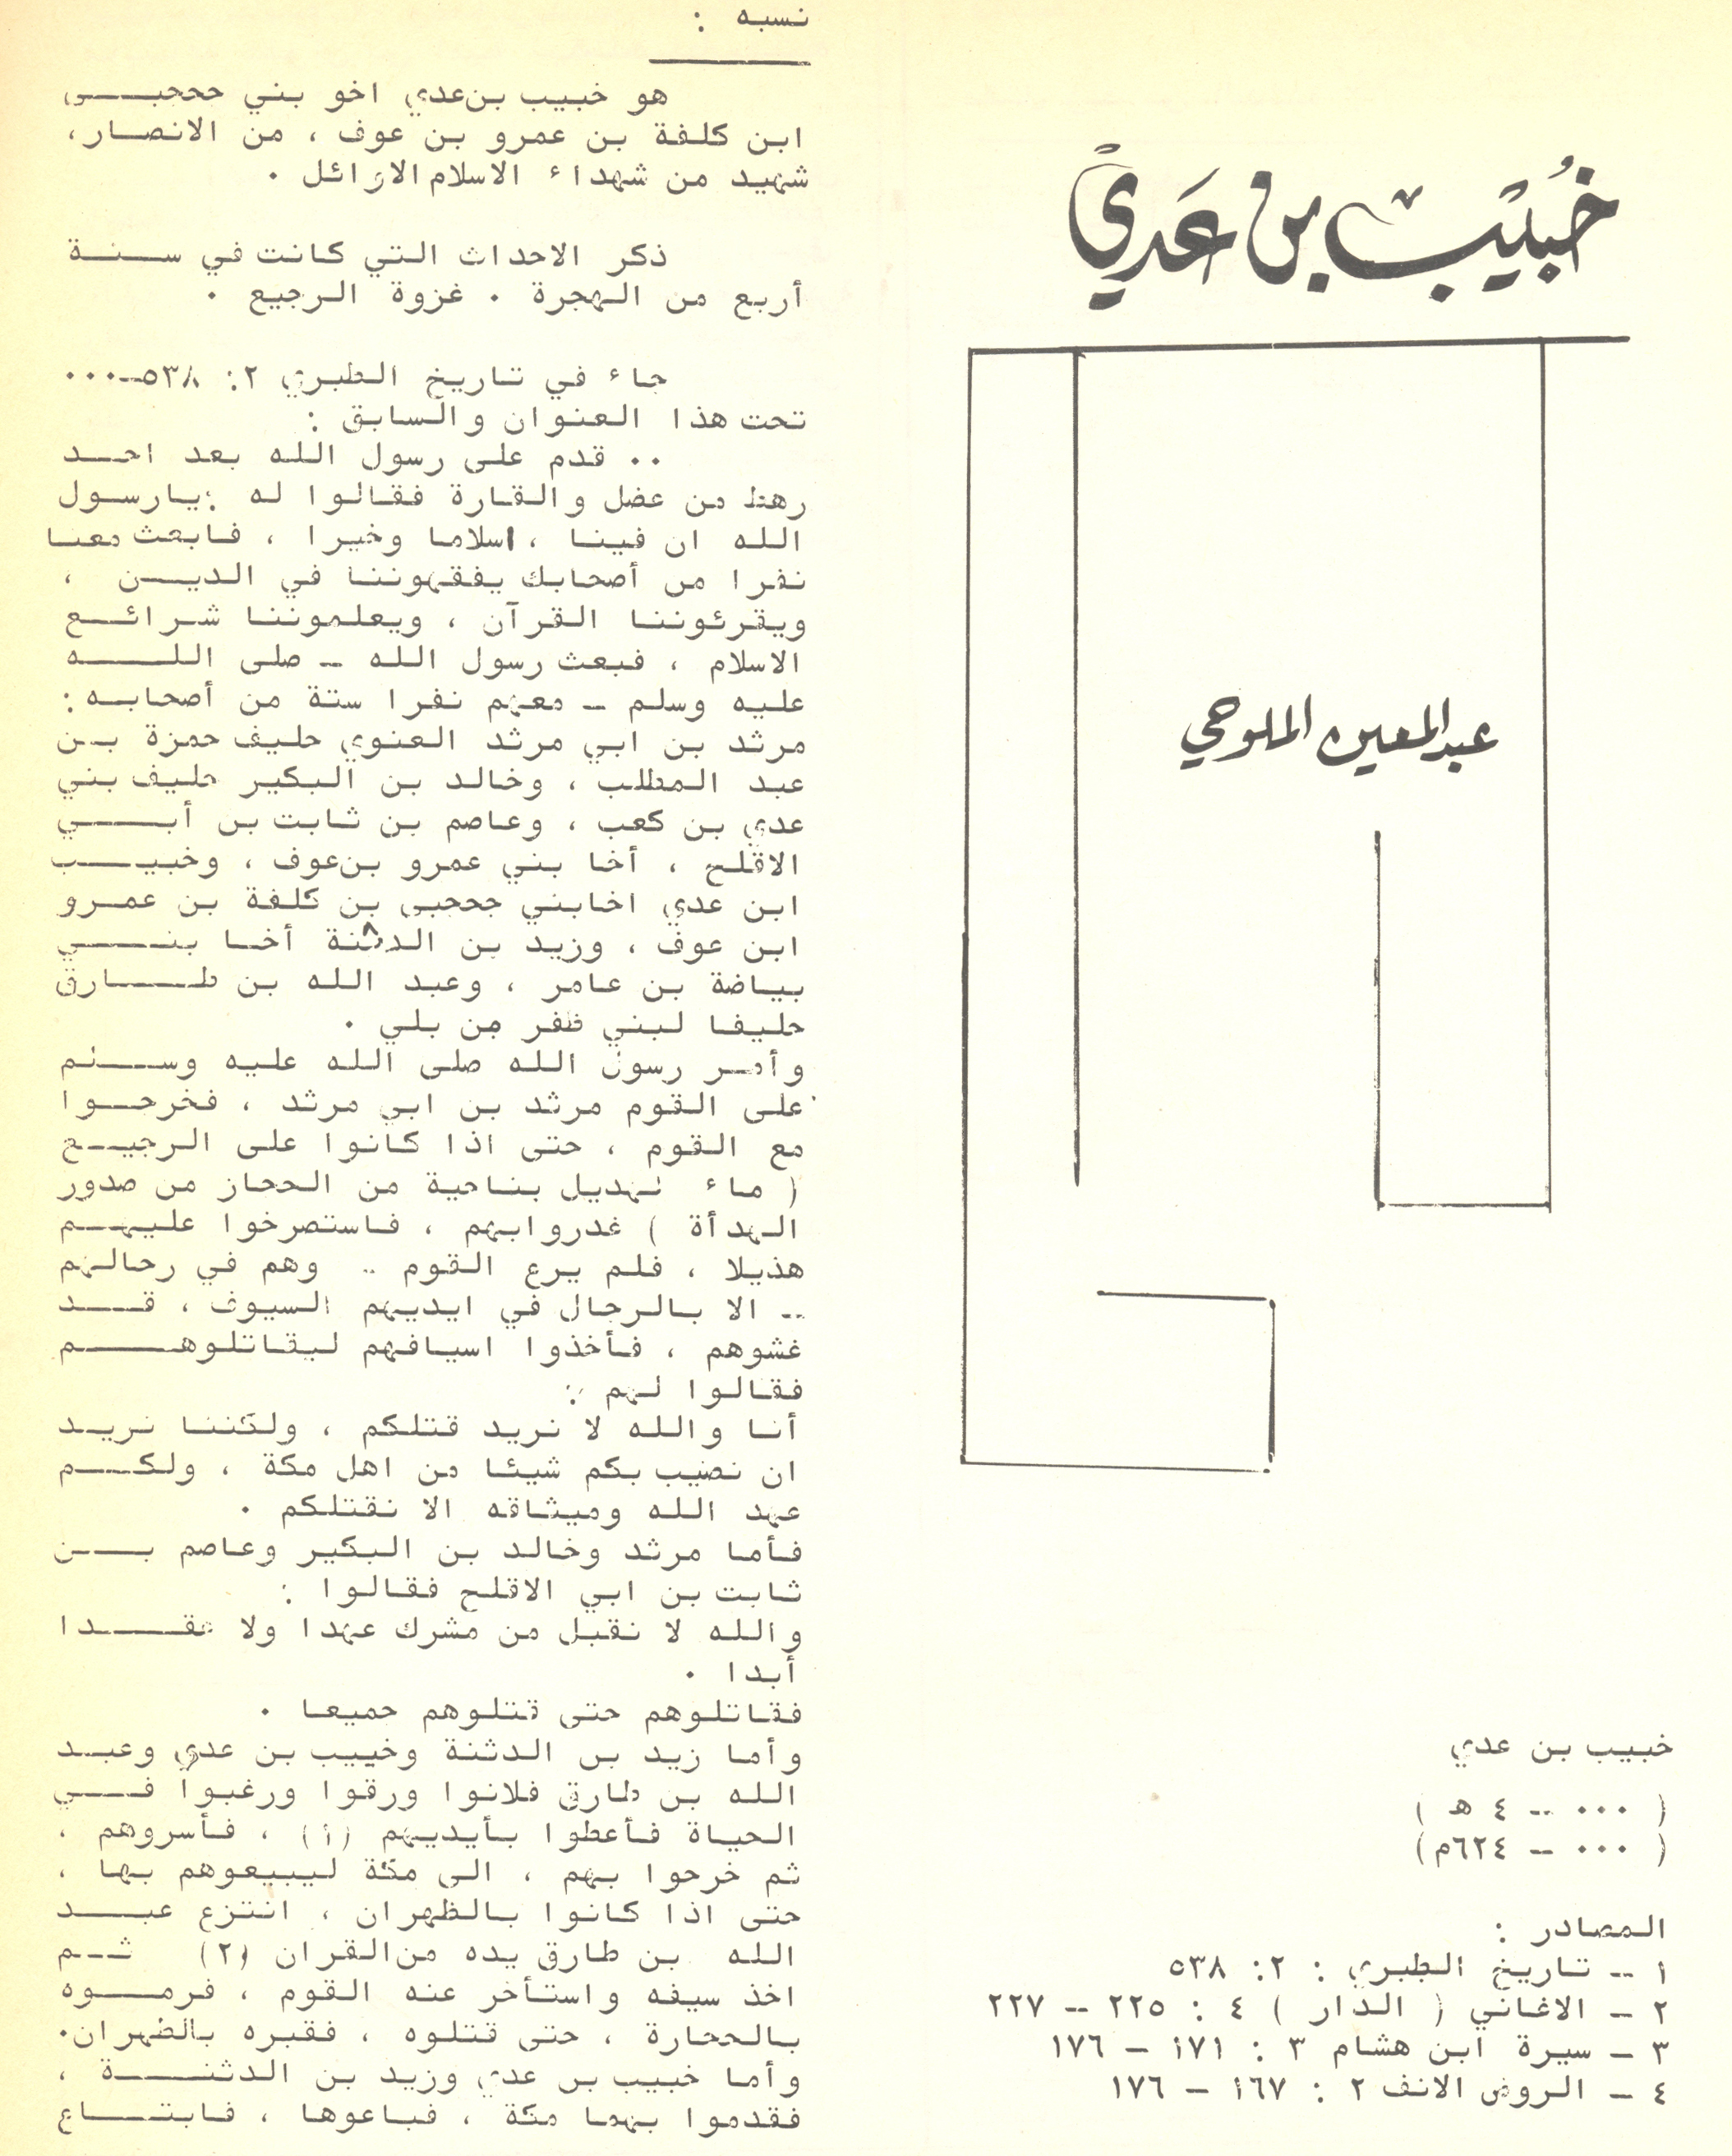 خُبَيْب بن عَدِيّ
عبد المعين الملوحي
خبيب بن عدي
( ٠٠٠ -- ٤ ه )
( ٠٠٠ -- ٦٢٤م)
المصادر :
١ -- تاريخ الطبري : ٢: ٥٣٨
٢ - الاغاني ( الدار ) ٤ : ٢٢٥ -- ٢٢٧
٣ - سيرة ابن هشام ٣ : ١٧١ - ١٧٦
٤ - الروض الانف ٢ : ١٦٧ - ١٧٦
نسبه :
هو خبيب بن عدي اخو بني جحجبى
ابن كلفة بن عمرو بن عوف ، من الانصار،
شهيد من شهداء الاسلام الاوائل .
ذكر الاحداث التي كانت في سنة
أربع من الهجرة . غزوة الرجيع .
جاء في تاريخ الطبري ٢: ٥٣٨-٠٠٠
تحت هذا العنوان والسابق :
.. قدم على رسول الله بعد احد
رهط من عضل والقارة فقالوا له :يارسول
الله ان فينا ، اسلاما وخيرا ، فابعث معنا
نفرا من أصحابك يفقهوننا في الدين ،
ويقرئوننا القرآن ، ويعلموننا شرائع
الاسلام ، فبعث رسول الله - صلى الله
عليه وسلم - معهم نفرا ستة من أصحابه:
مرثد بن ابي مرثد العنوي حليف حمزة بن
عبد المطلب ، وخالد بن البكير حليف بني
عدي بن كعب ، وعاصم بن ثابت بن أبي
الاقلح ، أخا بني عمرو بن عوف ، وخبيب
ابن عدي اخابني جحجبى بن كلفة بن عمرو
ابن عوف ، وزيد بن الدثنة أخا بني
بياضة بن عامر ، وعبد الله بن طارق
حليفا لبني ظفر من بلي .
وأمر رسول الله صلى الله عليه وسلم
على القوم مرثد بن ابي مرثد ، فخرجوا
مع القوم ، حتى اذا كانوا على الرجيع
( ماء لهديل بناحية من الحجاز من صدور
الهدأة ) غدروابهم ، فاستصرخوا عليهم
هذيلا ، فلم يرع القوم -- وهم في رحالهم
-- الا بالرجال في ايديهم السيوف ، قد
غشوهم ، فأخذوا اسيافهم ليقاتلوهم
فقالوا لهم :
أنا والله لا نريد قتلكم ، ولكننا نريد
ان نصيب بكم شيئا من اهل مكة ، ولكم
عهد الله وميثاقه الا نقتلكم .
فأما مرثد وخالد بن البكير وعاصم بن
ثابت بن ابي الاقلح فقالوا :
والله لا نقبل من مشرك عهدا ولا عقدا
أبدا .
فقاتلوهم حتى قتلوهم جميعا .
وأما زيد بن الدثنة وخبيب بن عدي وعبد
الله بن طارق فلانوا ورقوا ورغبوا في
الحياة فأعطوا بأيديهم (١) ، فأسروهم ،
ثم خرجوا بهم ، الى مكة ليبيعوهم بها ،
حتى اذا كانوا بالظهران ، انتزع عبد
الله بن طارق يده من القران (٢) ثم
اخذ سيفه واستأخر عنه القوم ، فرموه
بالحجارة ، حتى قتلوه ، فقبره بالظهران.
وأما خبيب بن عدي وزيد بن الدثنة ،
فقدموا بهما مكة ، فباعوها ، فابتاع